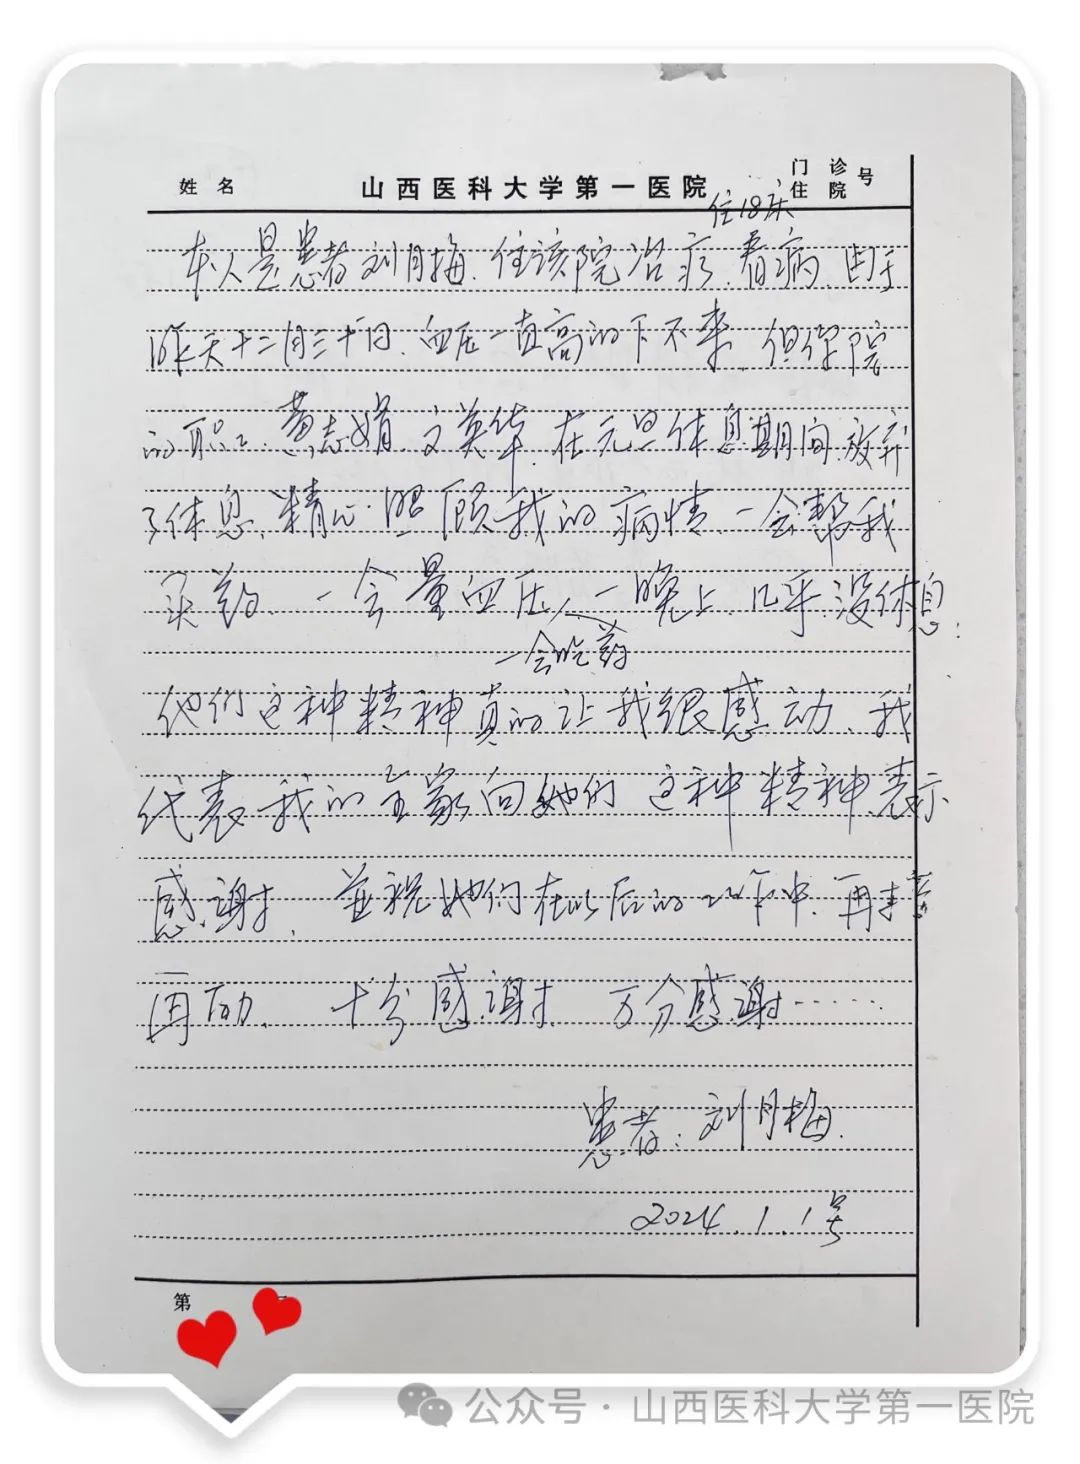 姓名 山西医科大学第一医院 门诊住院号
住18床
本人是患者刘月梅、住该院治疗、看病、由于
昨天十二月三十一日、血压一直高的下不来、但你院
的职工、黄志娟、文英华、在元旦休息期间、放弃
了休息、精心照顾我的病情、一会帮我
买药、一会量血压、一晚上、几乎没休息:
一会吃药
他们这种精神真的让我很感动、我
代表我的全家向她们这种精神表示
感谢、並祝她们在以后的工作中、再接
再励、十分感谢、万分感谢……
患者:刘月梅.
2024.1.1号
第
公众号·山西医科大学第一医院